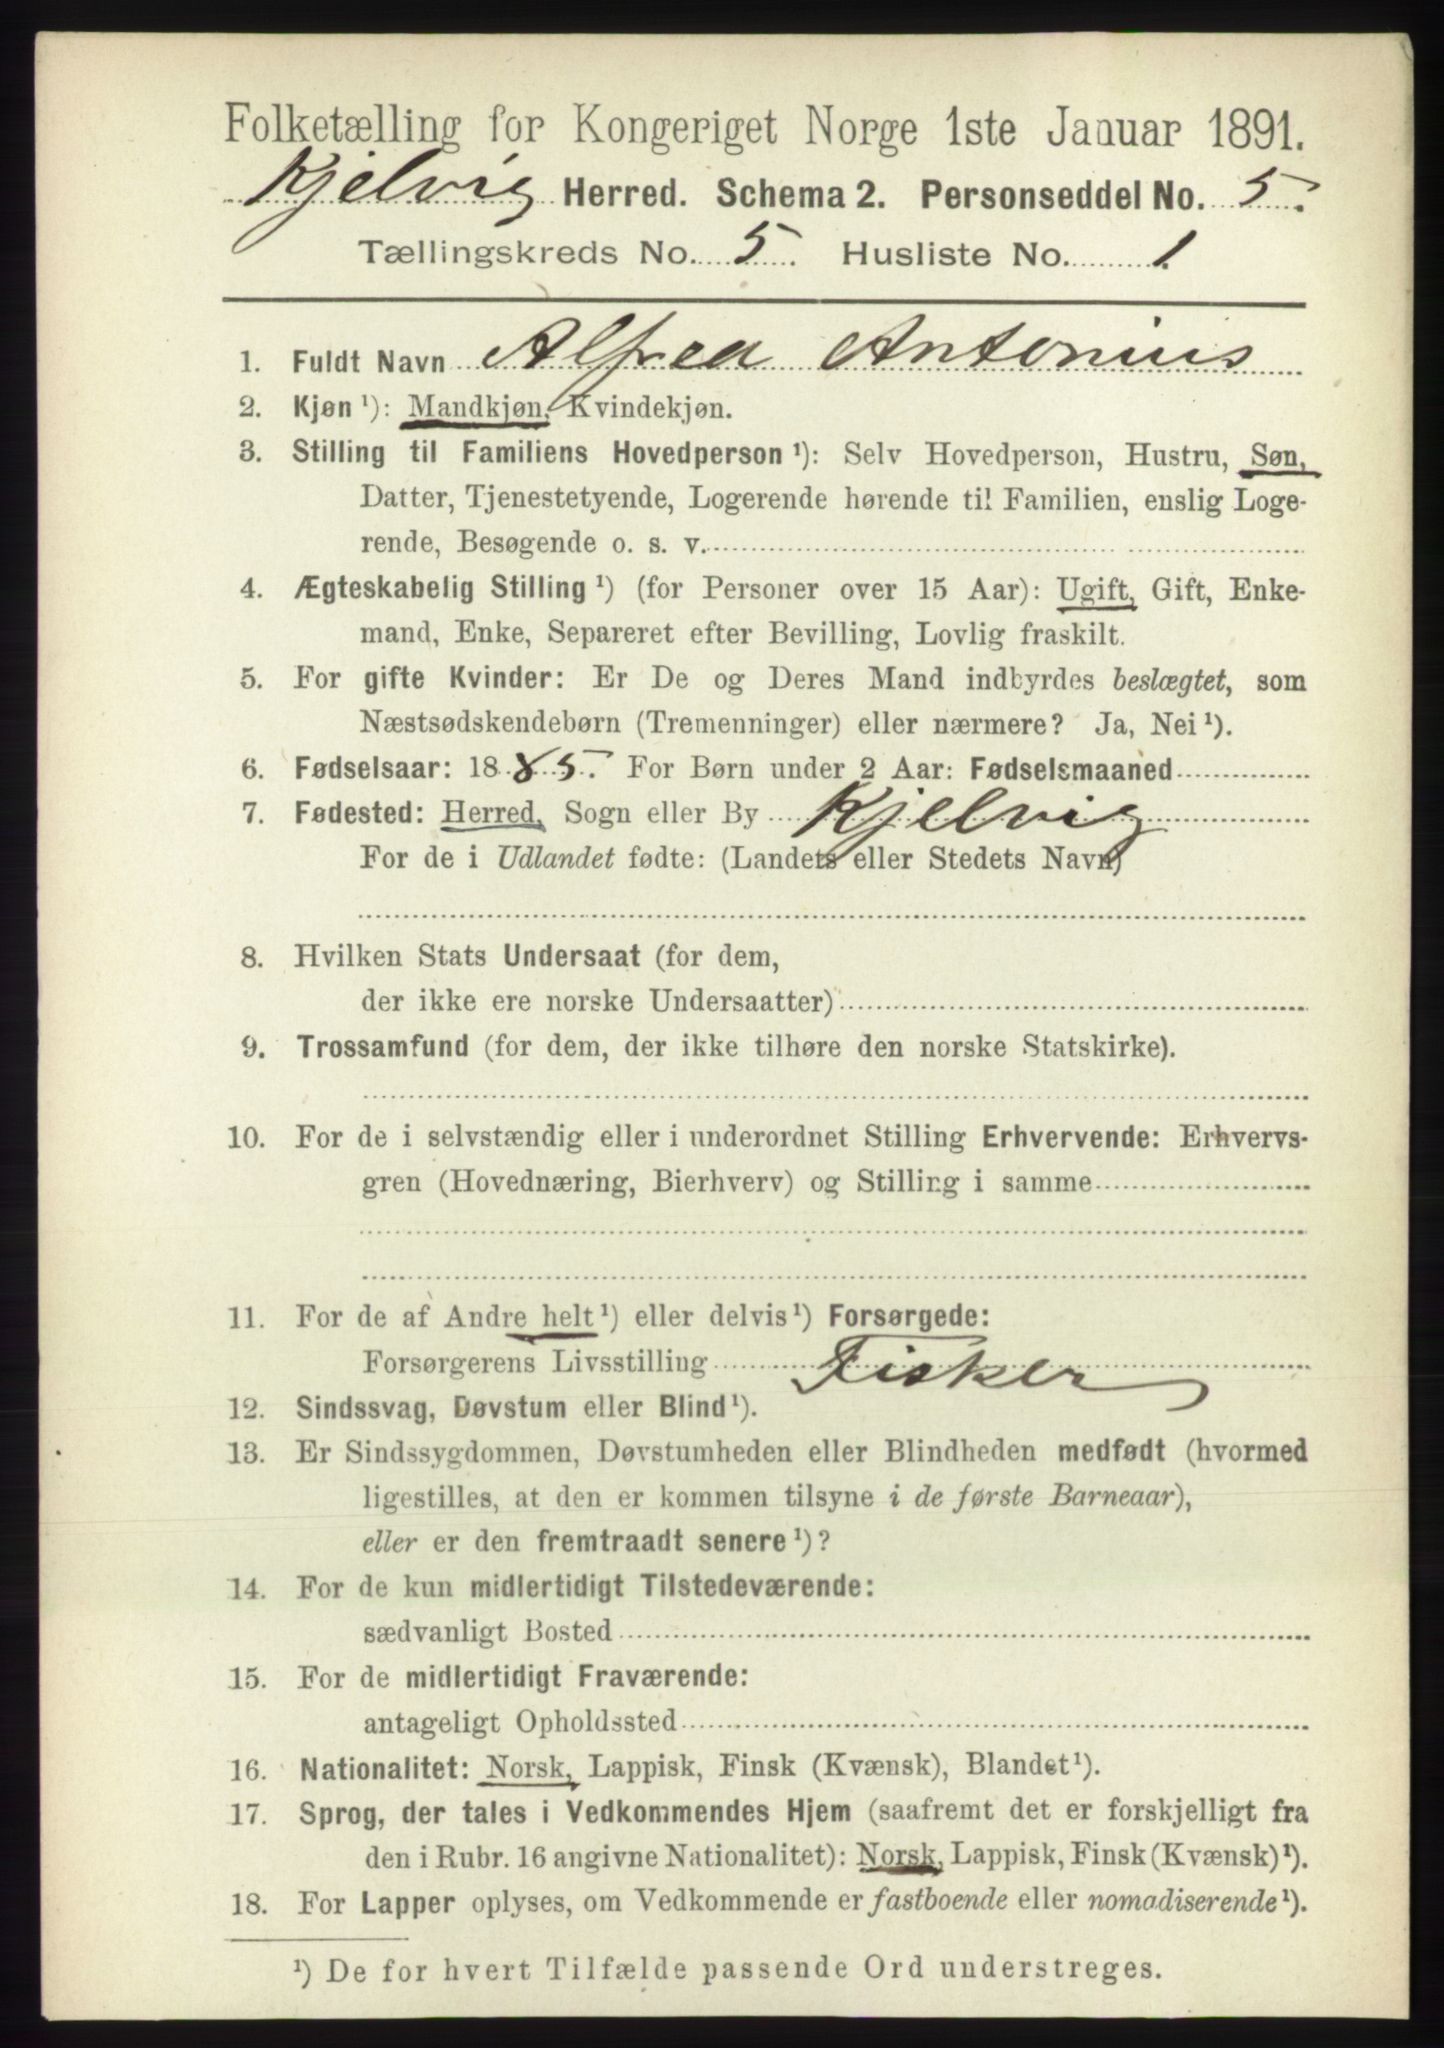 Folketælling for Kongeriget Norge 1ste Januar 1891.
Kjelvig Herred. Schema 2. Personseddel No. 5.
Tællingskreds No. 5. Husliste No. 1.
1. Fuldt Navn Alfred Antonius
2. Kjøn ¹): Mandkjøn, Kvindekjøn.
3. Stilling til Familiens Hovedperson ¹): Selv Hovedperson, Hustru, Søn,
Datter, Tjenestetyende, Logerende hørende til Familien, enslig Loge-
rende, Besøgende o. s. v.
4. Ægteskabelig Stilling ¹) (for Personer over 15 Aar): Ugift, Gift, Enke-
mand, Enke, Separeret efter Bevilling, Lovlig fraskilt.
5. For gifte Kvinder: Er De og Deres Mand indbyrdes beslægtet, som
Næstsødskendebørn (Tremenninger) eller nærmere? Ja, Nei ¹).
6. Fødselsaar: 1885. For Børn under 2 Aar: Fødselsmaaned
7. Fødested: Herred, Sogn eller By Kjelvig
For de i Udlandet fødte: (Landets eller Stedets Navn)
8. Hvilken Stats Undersaat (for dem,
der ikke ere norske Undersaatter)
9. Trossamfund (for dem, der ikke tilhøre den norske Statskirke).
10. For de i selvstændig eller i underordnet Stilling Erhvervende: Erhvervs-
gren (Hovednæring, Bierhverv) og Stilling i samme
11. For de af Andre helt ¹) eller delvis ¹) Forsørgede:
Forsørgerens Livsstilling Fisker
12. Sindssvag, Døvstum eller Blind ¹).
13. Er Sindssygdommen, Døvstumheden eller Blindheden medfødt (hvormed
ligestilles, at den er kommen tilsyne i de første Barneaar),
eller er den fremtraadt senere ¹)?
14. For de kun midlertidigt Tilstedeværende:
sædvanligt Bosted
15. For de midlertidigt Fraværende:
antageligt Opholdssted
16. Nationalitet: Norsk, Lappisk, Finsk (Kvænsk), Blandet ¹).
17. Sprog, der tales i Vedkommendes Hjem (saafremt det er forskjelligt fra
den i Rubr. 16 angivne Nationalitet): Norsk, Lappisk, Finsk (Kvænsk) ¹).
18. For Lapper oplyses, om Vedkommende er fastboende eller nomadiserende ¹).
¹) De for hvert Tilfælde passende Ord understreges.